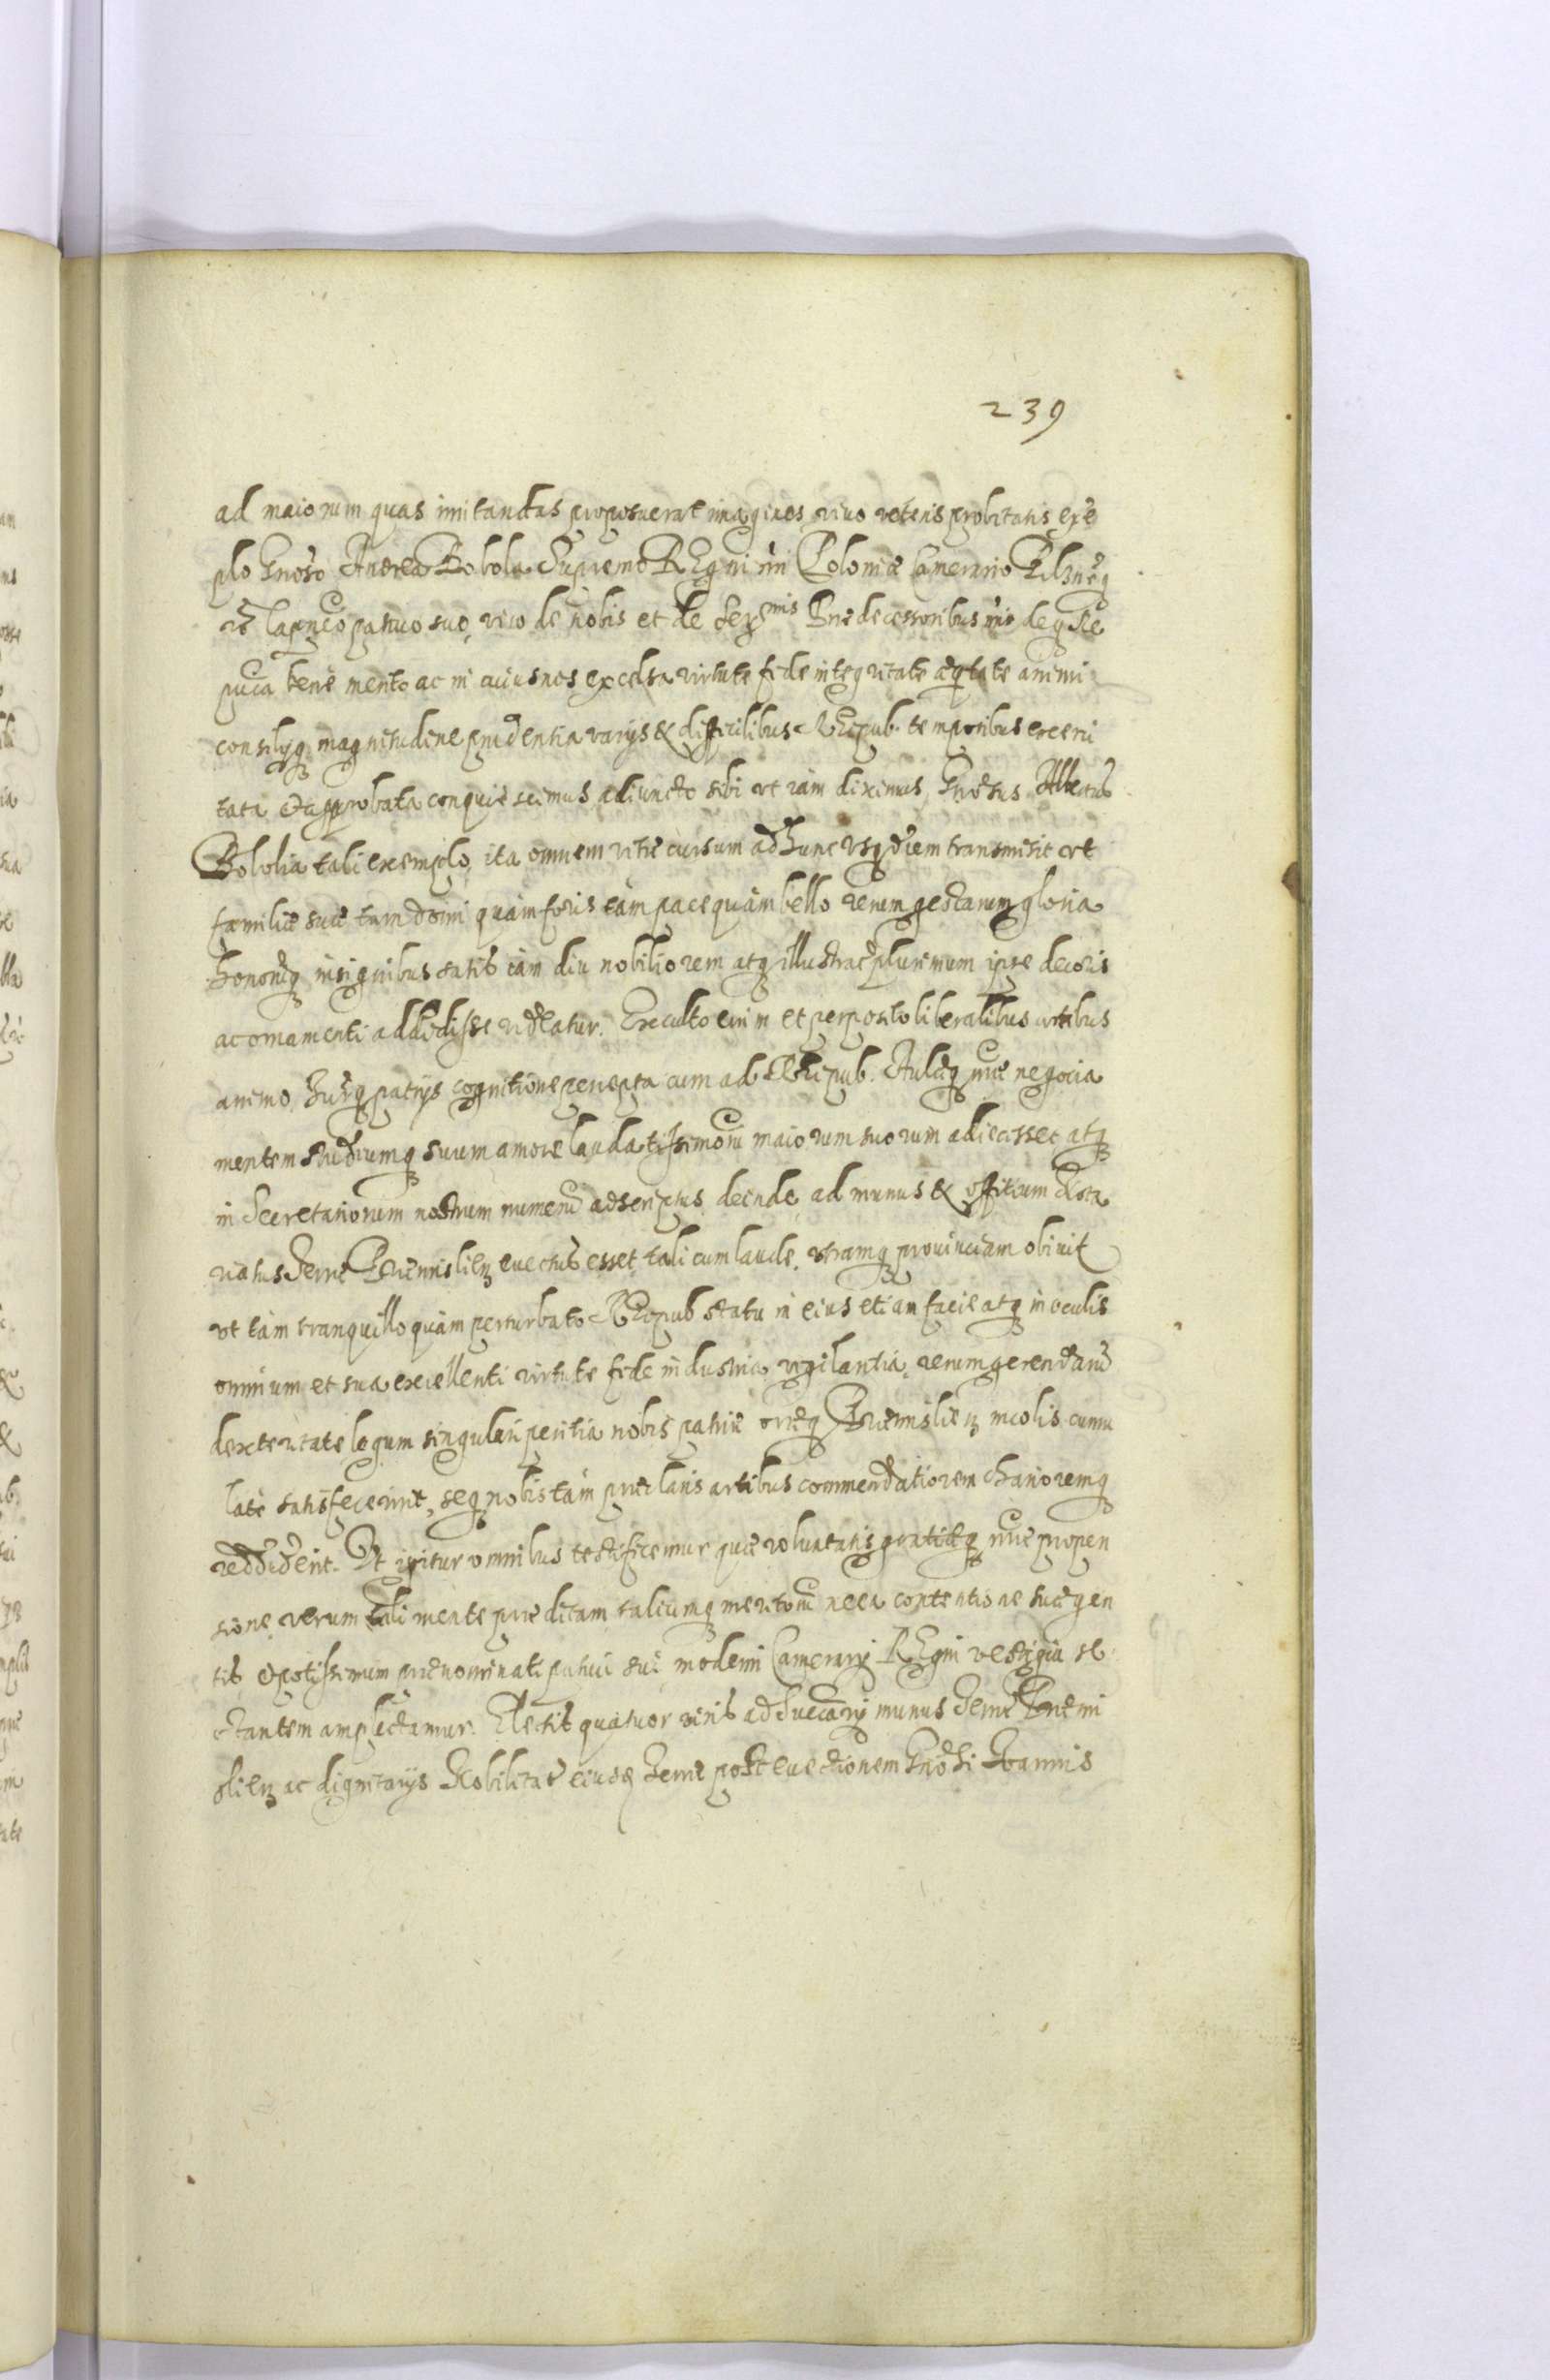 239
ad maiorum quas imitandas proposuerat imagines, vivo veteris probitatis exe
plo Gnoso Andrea Bobola Supremo REgni nri Poloniæ Camerario Pilzneq
patruo suo, viro de nobis et de Serenmis Prædecessoribus nris deq Re
puca bene merito ac in cuius nos excelsa virtute fide integritate æqtate animi
consilyq magnitudine prudentia varys & difficilibus REipub. temporibus exerci
tata & approbata conquiescimus, adiuncto sibi ut iam diximus, Gnosus Albertus
Bobola tali exemplo, ita omnem vitæ cursum ad hunc usq diem transmisit ut
familiæ suæ tam domi quam foris tam pace quàm bello rerum gestarum gloria
honorũq insignibus satis iam diu nobiliorem atq illustrare plurimum ipse decoris
ac ornamenti addidisse videatur. Exculto enim et perpolito liberalibus artibus
animo, Iurisq patrys cognitione percepta cum ad REipub. Aulæq nræ negocia
mentem studiumq suum amore laudatissimorũ maiorum suorum adiecisset atq
in Secretariorum nostrum numerũ adscriptus, deinde ad munus & officium Nota
riatus Terræ Præmislien evectus esset, tali cum laude, utramq provinciam obivit
vt tàm tranquillo quàm perturbato REipub statu in eius etiam facie atq in oculis
omnium et sua excellenti virtute fide industria vigilantia, rerum gerendarũ
dexteritate legum singulari peritia nobis patriæ Præmislien incolis cumu
latè satisfecerint, seq nobis tam præclaris artibus commendatiorem charioremq
reddiderit. Vt igitur omnibus testificemur quæ voluntatis gratiæq nræ propen
sione, verum tali mente præditam taliumq meritorũ nec contentione suæ gen
tis & potissimum prænominati patrui sui moderni Camerary REgni vestigia se
ctantem amplectamur. Electis quatuor viris ad Iudicary munus Terræ Præmi
slien ac dignitarys Nobilitate eiusd Terræ post evectionem Gnosi Ioannis